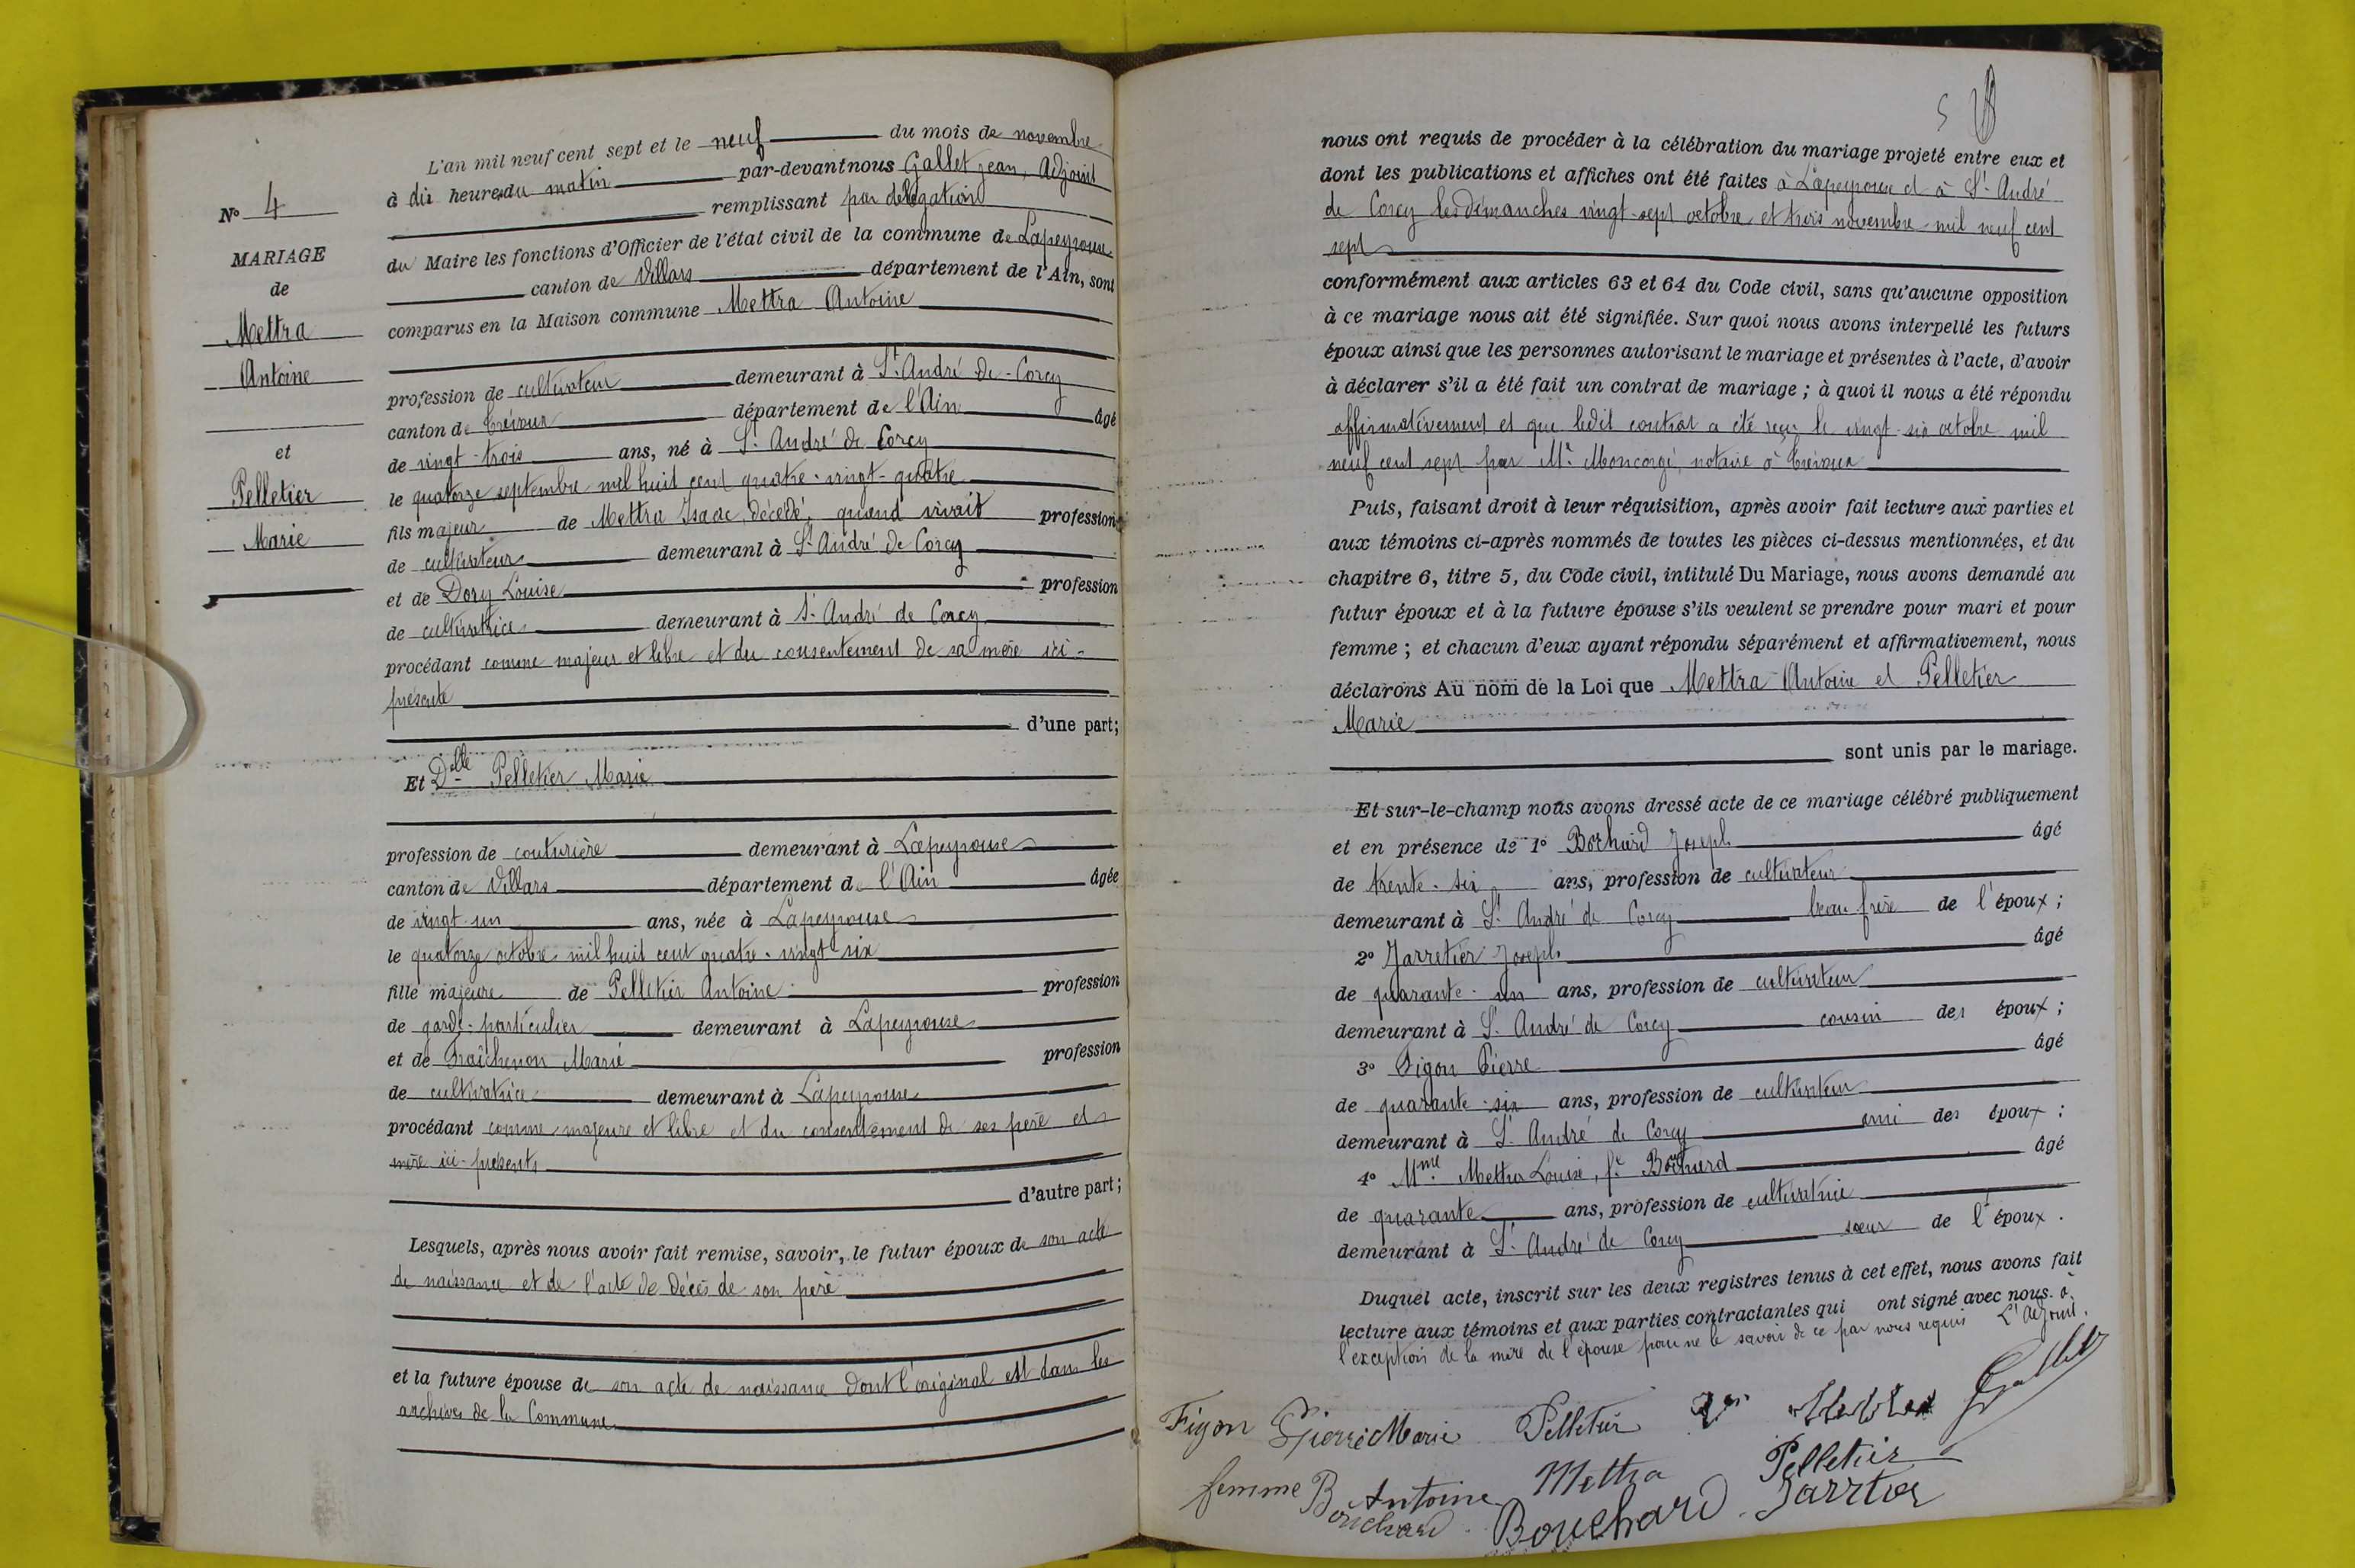 L'an mil neuf cent sept et le neuf du mois de novembre
à dix heures du matin par-devant nous Gallet Jean, Adjoint
remplissant par délégation
du Maire les fonctions d'Officier de l'état civil de la commune de Lapeyrouse
canton de Villars département de l'Ain, sont
comparus en la Maison commune Mettra Antoine
profession de cultivateur demeurant à St André de-Corcy
canton de Trévoux département de l'Ain âgé
de vingt-trois ans, né à St André de Corcy
le quatorze septembre mil huit cent quatre-vingt-quatre
fils majeur de Mettra Isaac, décédé, quand vivait profession
de cultivateur demeurant à St André de Corcy
et de Dory Louise profession
de cultivatrice demeurant à St André de Corcy
procédant comme majeur et libre et du consentement de sa mère ici-
présente
d'une part;
Et Dlle Pelletier Marie
profession de couturière demeurant à Lapeyrouse
canton de Villars département de l'Ain âgée
de vingt-un ans, née à Lapeyrouse
le quatorze octobre mil huit cent quatre-vingt-six
fille majeure de Pelletier Antoine profession
de garde-particulier demeurant à Lapeyrouse
et de Fraîchenon Marie profession
de cultivatrice demeurant à Lapeyrouse
procédant comme majeure et libre et du consentement de ses père et
mère ici-présents
d'autre part;
Lesquels, après nous avoir fait remise, savoir, le futur époux de son acte
de naissance et de l'acte de décès de son père
et la future épouse de son acte de naissance dont l'original est dans les
archives de la Commune
No 4
MARIAGE
de
Mettra
Antoine
et
Pelletier
Marie
5
nous ont requis de procéder à la célébration du mariage projeté entre eux et
dont les publications et affiches ont été faites à Lapeyrouse et à St André
de Corcy les dimanches vingt-sept octobre et trois novembre mil neuf cent
sept
conformément aux articles 63 et 64 du Code civil, sans qu'aucune opposition
à ce mariage nous ait été signifiée. Sur quoi nous avons interpellé les futurs
époux ainsi que les personnes autorisant le mariage et présentes à l'acte, d'avoir
à déclarer s'il a été fait un contrat de mariage; à quoi il nous a été répondu
affirmativement et que ledit contrat a été reçu le vingt-six octobre mil
neuf cent sept par Me Moncorgé, notaire à Trévoux
Puis, faisant droit à leur réquisition, après avoir fait lecture aux parties et
aux témoins ci-après nommés de toutes les pièces ci-dessus mentionnées, et du
chapitre 6, titre 5, du Code civil, intitulé Du Mariage, nous avons demandé au
futur époux et à la future épouse s'ils veulent se prendre pour mari et pour
femme; et chacun d'eux ayant répondu séparément et affirmativement, nous
déclarons Au nom de la Loi que Mettra Antoine et Pelletier
Marie
sont unis par le mariage.
Et sur-le-champ nous avons dressé acte de ce mariage célébré publiquement
et en présence de 1º Bochard Joseph âgé
de trente-six ans, profession de cultivateur
demeurant à St André de Corcy beau frère de l'époux;
2º Jarretier Joseph âgé
de quarante-un ans, profession de cultivateur
demeurant à St André de Corcy cousin des époux;
3º Figon Pierre âgé
de quarante-six ans, profession de cultivateur
demeurant à St André de Corcy ami des époux;
4º Mme Mettra Louise, fe Bochard âgé
de quarante ans, profession de cultivatrice
demeurant à St André de Corcy soeur de l'époux.
Duquel acte, inscrit sur les deux registres tenus à cet effet, nous avons fait
lecture aux témoins et aux parties contractantes qui ont signé avec nous. à
l'exception de la mère de l'épouse pour ne le savoir de ce par nous requis L'Adjoint.
Figon Pierre Marie Pelletier Gallet
femme Bouchard Antoine Mettra Pelletier
Bouchard Jarrtier